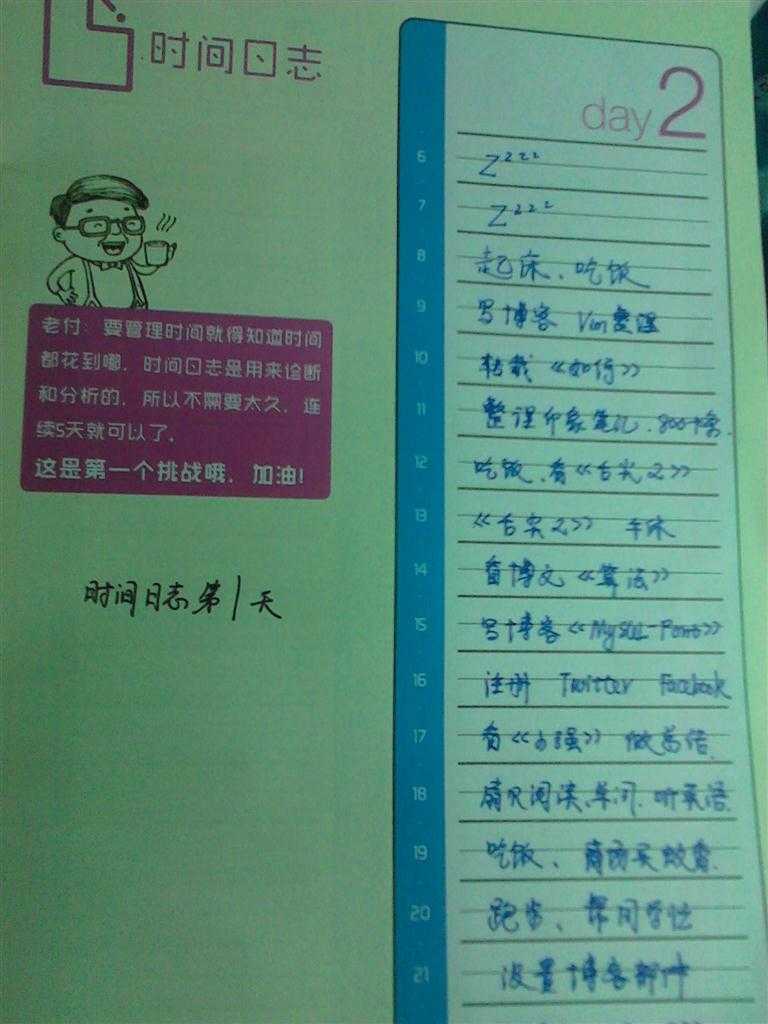 时间日志
老付：要管理时间就得知道时间
都花到哪，时间日志是用来诊断
和分析的，所以不需要太久，连
续5天就可以了。
这是第一个挑战哦，加油！
时间日志第1天
day 2
6 Zzzz
7 Zzzz
8 起床、吃饭
9 写博客 Vim整理
10 转载《如何》
11 整理印象笔记、800个条
12 吃饭、看《舌尖2》
13 《舌尖2》 午休
14 看博文《算法》
15 写博客《MySQL-Point》
16 注册 Twitter Facebook
17 看《小强》 做总结
18 扇贝阅读、单词、听英语
19 吃饭、商场买蚊香
20 跑步、
21 设置博客邮件